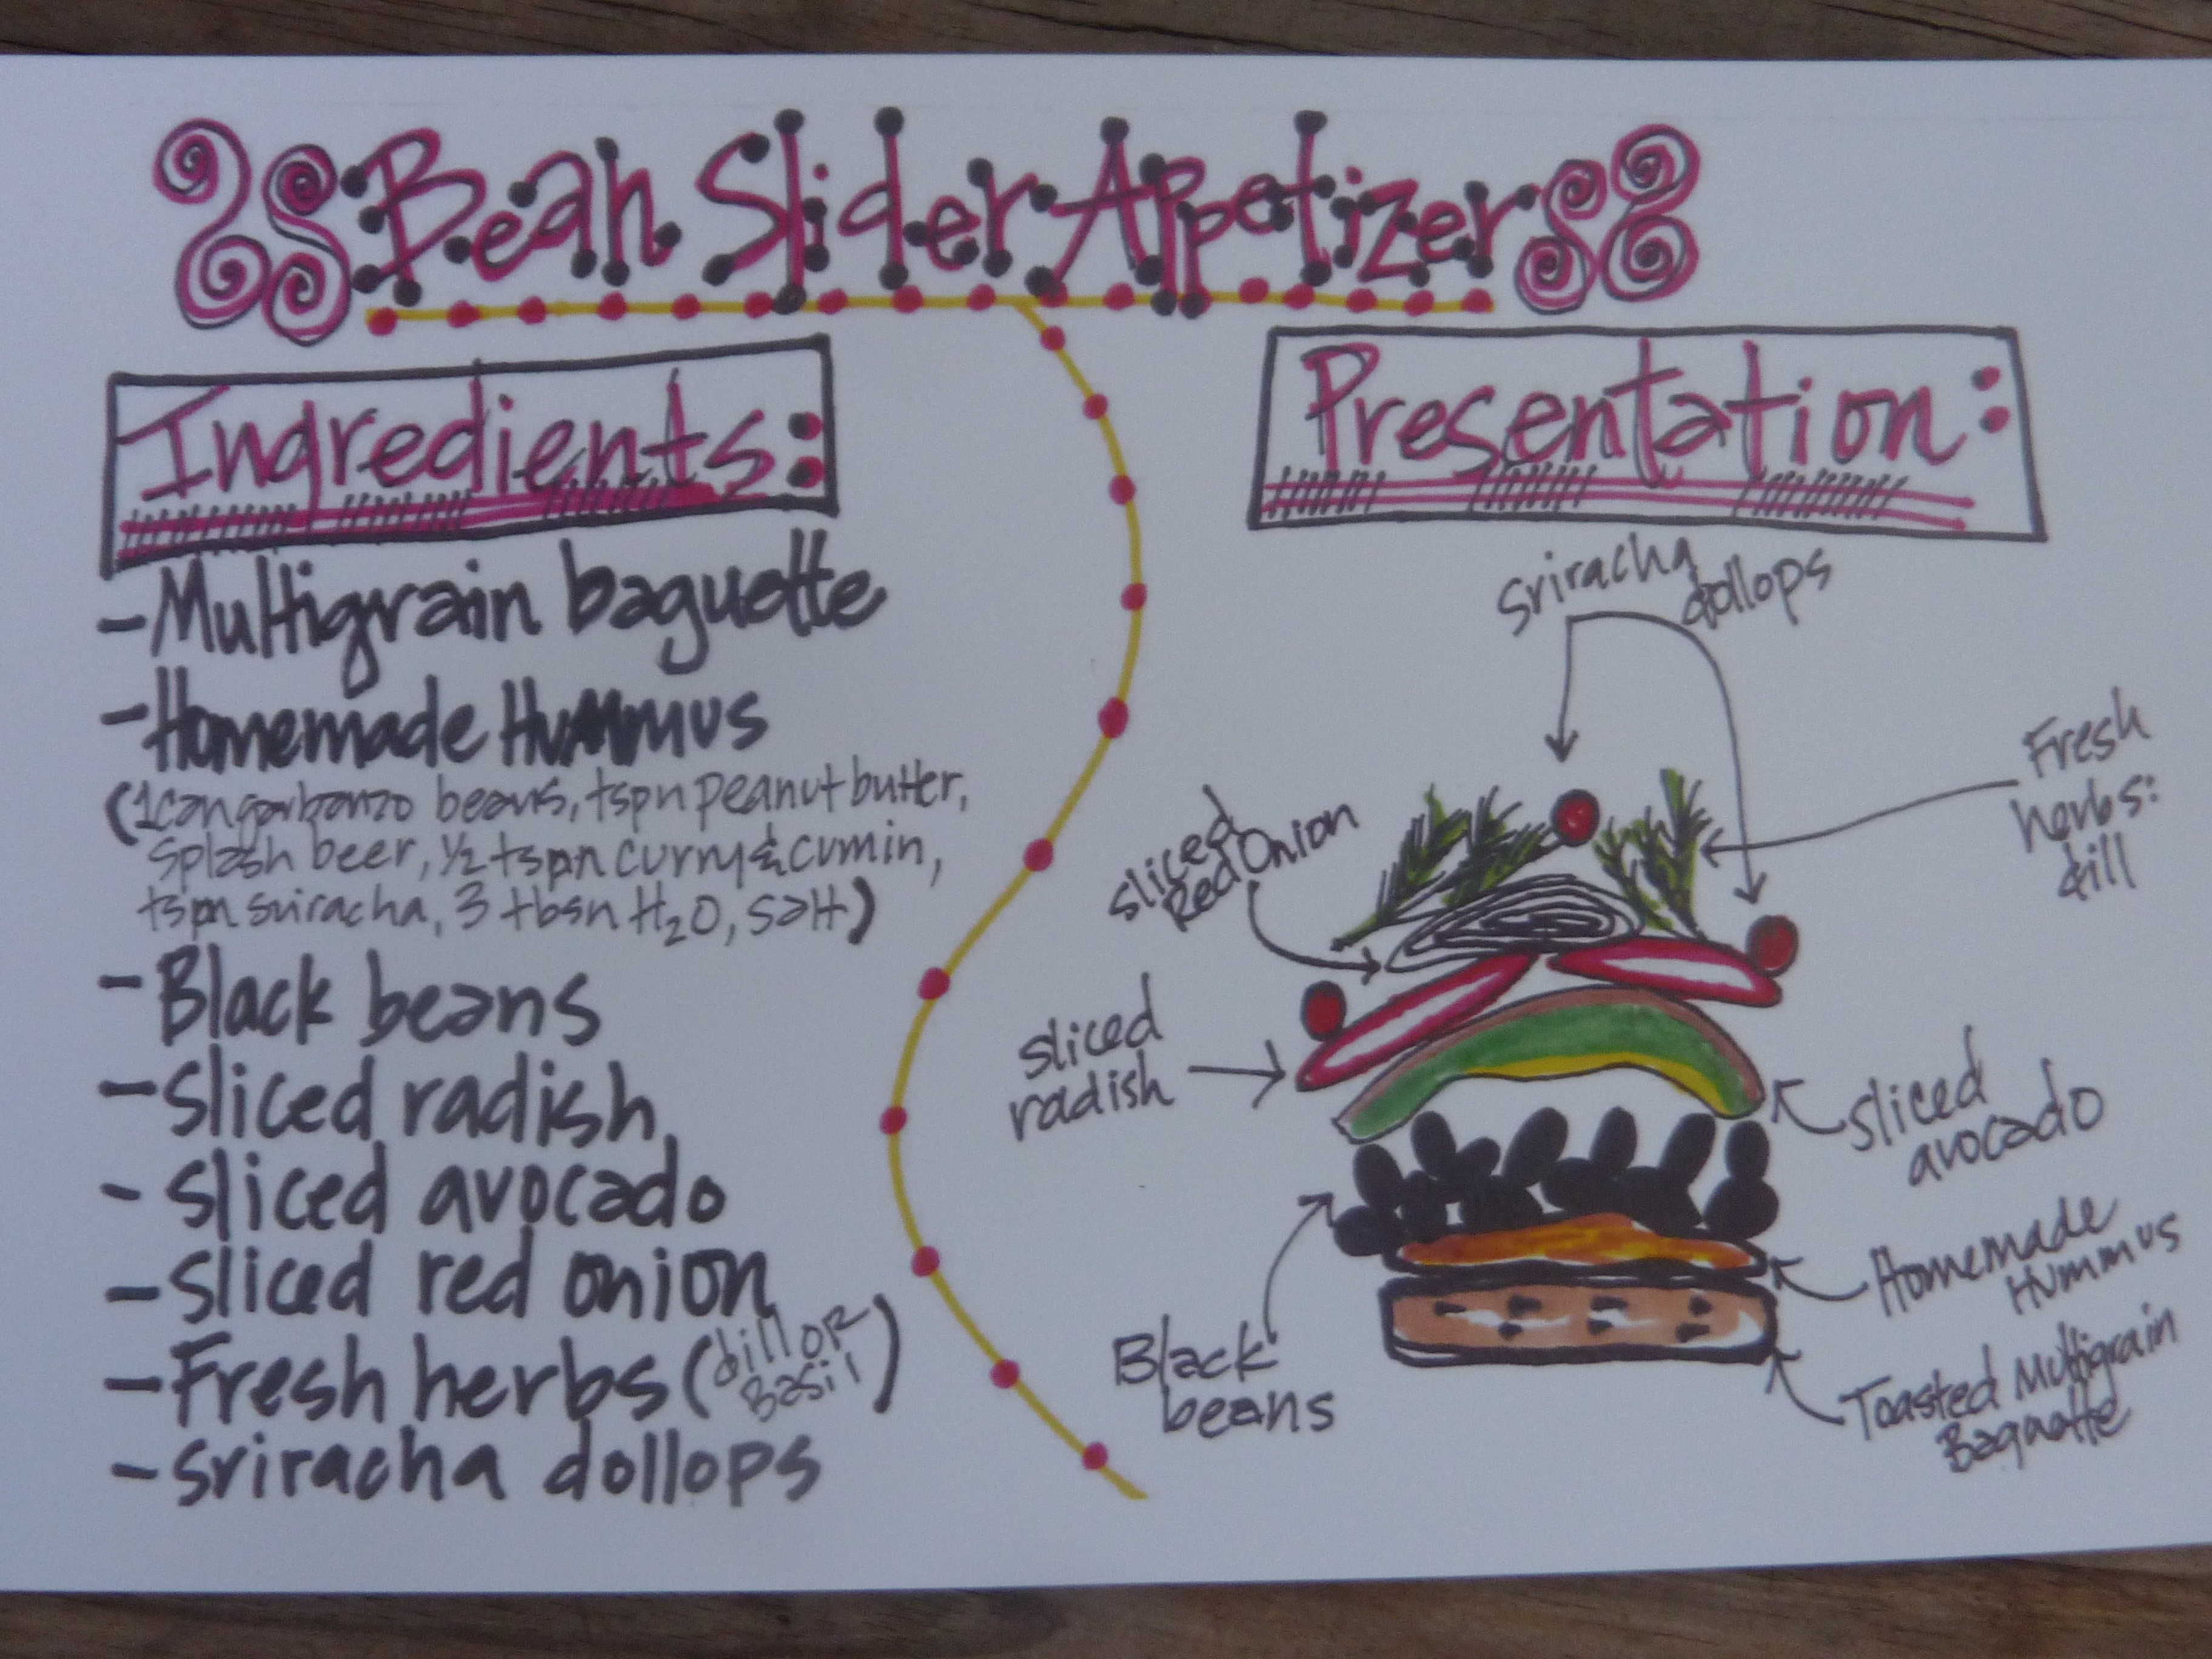 Bean Slider Appetizer
Ingredients:
- Multigrain baguette
- Homemade Hummus
(1 can garbanzo beans, tspn peanut butter,
splash beer, ½ tspn curry & cumin,
tspn sriracha, 3 tbsn H₂O, salt)
- Black beans
- sliced radish
- sliced avocado
- sliced red onion
- Fresh herbs (dill or
Basil)
- sriracha dollops
Presentation:
sriracha
dollops
Fresh
herbs:
dill
sliced
Red Onion
sliced
radish
sliced
avocado
Homemade
Hummus
Black
beans
Toasted Multigrain
Baguette